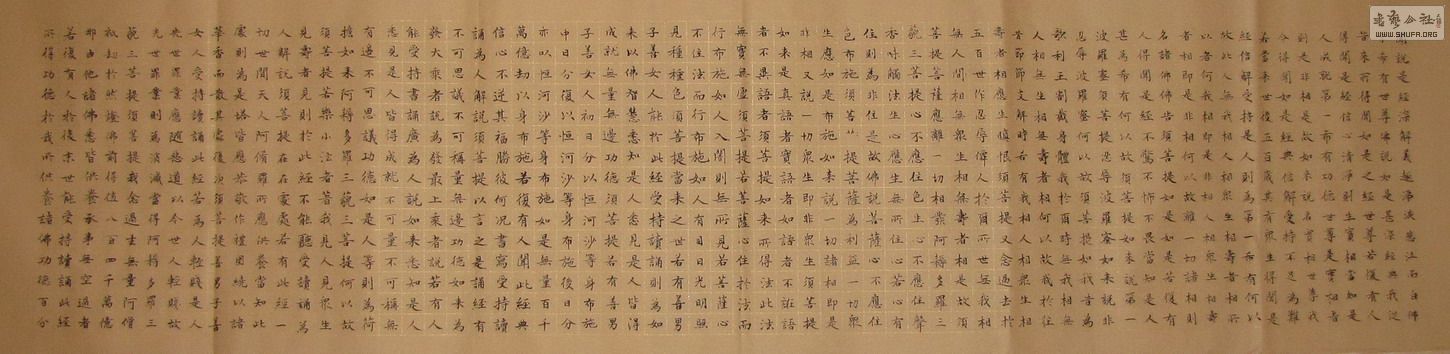 聞說是經深解義趣涕淚悲泣而白佛
言希有世尊佛說如是甚深經典我從
昔來所得慧眼未曾得聞如是之經世尊若復有人
得聞是經信心清淨則生實相當知是
人成就第一希有功德世尊是實相者
則是非相是故如來說名實相世尊我
今得聞如是經典信解受持不足為難
若當來世後五百歲其有眾生得聞是
經信解受持是人則為第一希有何以
故此人無我相人相眾生相壽者相所
以者何我相即是非相人相眾生相壽
者相即是非相何以故離一切諸相則
名諸佛佛告須菩提如是如是若復有
人得聞是經不驚不怖不畏當知是人
甚為希有何以故須菩提如來說第一
波羅蜜須菩提忍辱波羅蜜如來說非
忍辱波羅蜜何以故須菩提如我昔為
歌利王割截身體我於爾時無我相無
人相無眾生相無壽者相何以故我於往
昔節節支解時若有我相人相眾生相
壽者相應生瞋恨須菩提又念過去於
五百世作忍辱仙人於爾所世無我相
無人相無眾生相無壽者相是故須
菩提菩薩應離一切相發阿耨多羅三
藐三菩提心不應住色生心不應住聲
香味觸法生心應生無所住心若心有
住則為非住是故佛說菩薩心不應住
色布施須菩提菩薩為利益一切眾
生應如是布施如來說一切諸相即是
非相又說一切眾生即非眾生須菩提
如來是真語者實語者如語者不誑語
者不異語者須菩提如來所得法此法
無實無虛須菩提若菩薩心住於法而
行布施如人入闇則無所見若菩薩心
不住法而行布施如人有目日光明照
見種種色須菩提當來之世若有善男
子善女人能於此經受持讀誦則為如
來以佛智慧悉知是人悉見是人皆得
成就無量無邊功德須菩提若有善男
子善女人初日分以恒河沙等身布施
中日分復以恒河沙等身布施後日分
亦以恒河沙等身布施如是無量百千
萬億劫以身布施若復有人聞此經典
信心不逆其福勝彼何況書寫受持讀
誦為人解說須菩提以要言之是經有
不可思議不可稱量無邊功德如來為
發大乘者說為發最上乘者說若有人
能受持讀誦廣為人說如來悉知是人
悉見是人皆得成就不可量不可稱無
有邊不可思議功德如是人等則為荷
擔如來阿耨多羅三藐三菩提何以故
須菩提若樂小法者著我見人見眾生
見壽者見則於此經不能聽受讀誦為
人解說須菩提在在處處若有此經一
切世間天人阿修羅所應供養當知此
處則為是塔皆應恭敬作禮圍繞以諸
華香而散其處復次須菩提善男子善
女人受持讀誦此經若為人輕賤是人
先世罪業應墮惡道以今世人輕賤故
先世罪業則為消滅當得阿耨多羅三
藐三菩提須菩提我念過去無量阿僧
祇劫於然燈佛前得值八百四千萬億
那由他諸佛悉皆供養承事無空過者
若復有人於後末世能受持讀誦此經
所得功德於我所供養諸佛功德百分
WWW.SHUFA.ORG